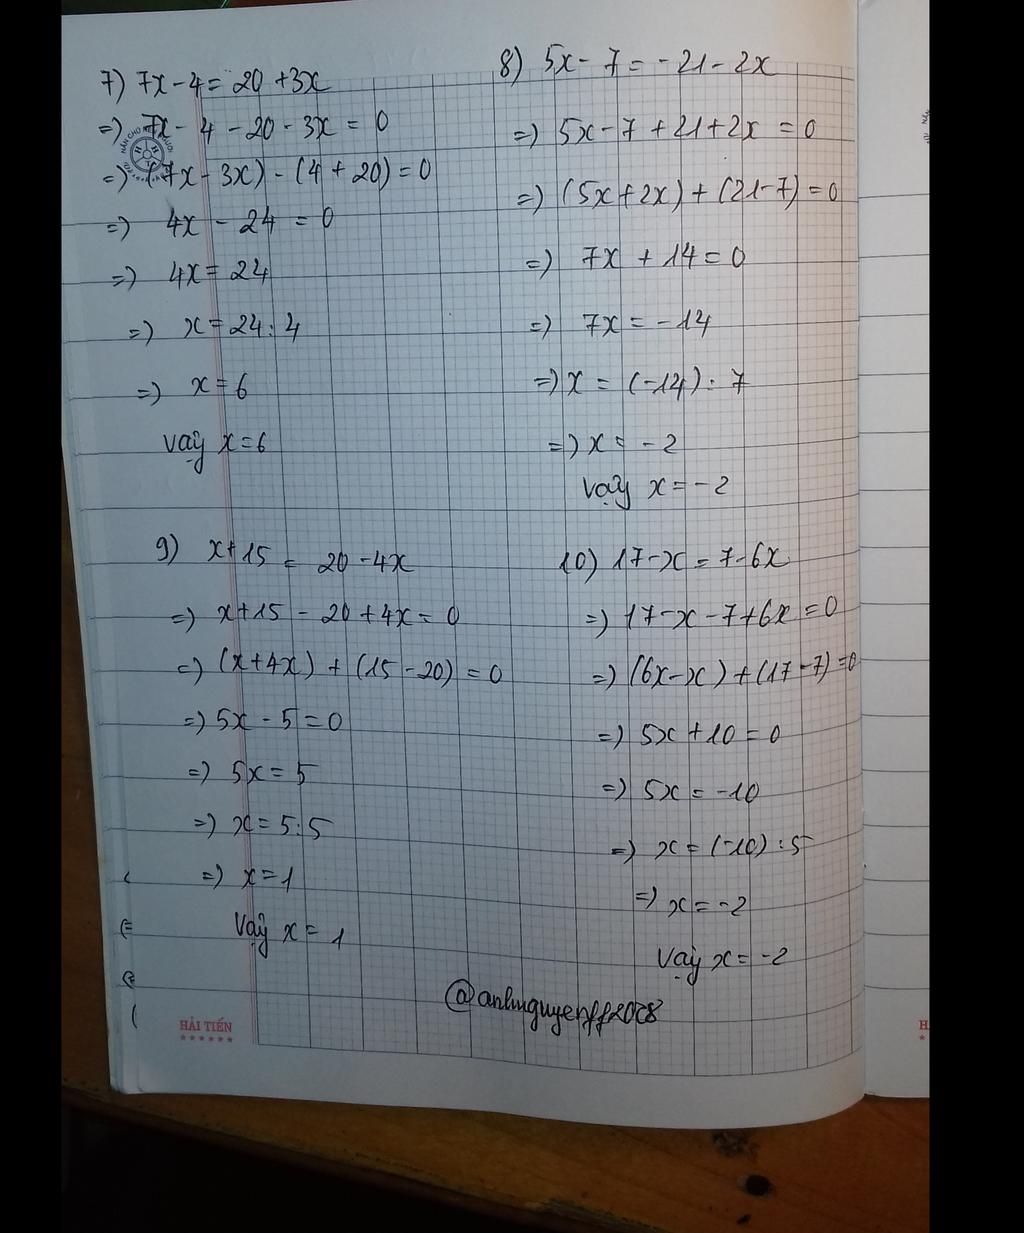 7) 7x - 4 = 20 + 3x
=) 7x - 4 - 20 - 3x = 0
=) (7x - 3x) - (4 + 20) = 0
=) 4x - 24 = 0
=) 4x = 24
=) x = 24 : 4
=) x = 6
vậy x = 6
8) 5x - 7 = -21 - 2x
=) 5x - 7 + 21 + 2x = 0
=) (5x + 2x) + (21 - 7) = 0
=) 7x + 14 = 0
=) 7x = -14
=) x = (-14) : 7
=) x = -2
Vậy x = -2
9) x + 15 = 20 - 4x
=) x + 15 - 20 + 4x = 0
=) (x + 4x) + (15 - 20) = 0
=) 5x - 5 = 0
=) 5x = 5
=) x = 5 : 5
=) x = 1
Vậy x = 1
10) 17 - x = 7 - 6x
=) 17 - x - 7 + 6x = 0
=) (6x - x) + (17 - 7) = 0
=) 5x + 10 = 0
=) 5x = -10
=) x = (-10) : 5
=) x = -2
Vậy x = -2
HẢI TIẾN
H